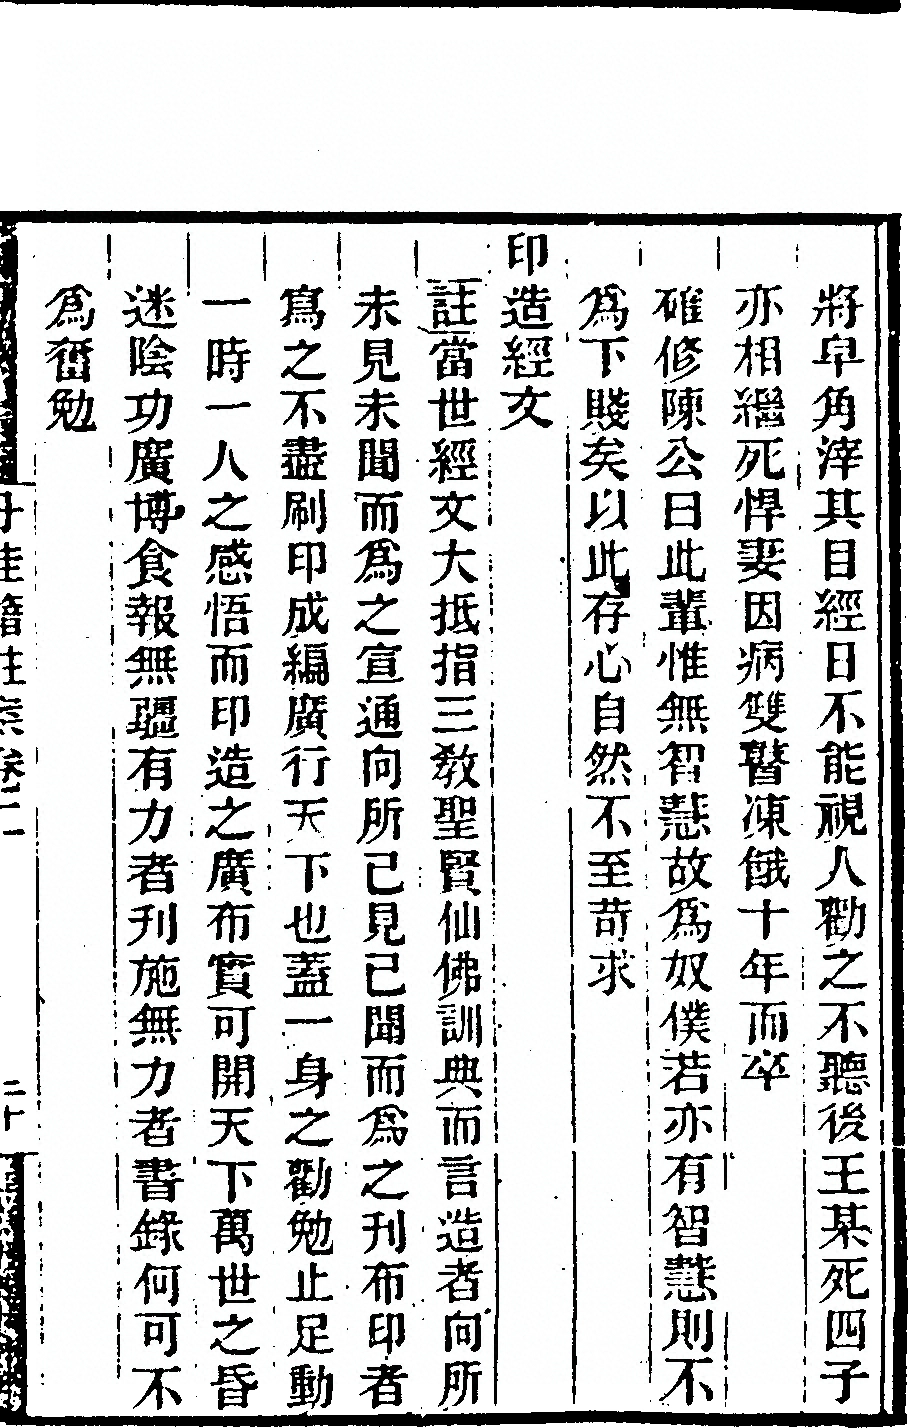 將皁角滓其目經日不能視人勸之不聽後王某死四子
亦相繼死悍妻因病雙瞽凍餓十年而卒
碓修陳公曰此輩惟無智慧故爲奴僕若亦有智慧則不
爲下賤矣以此存心自然不至苛求
印造經文
註當世經文大抵指三敎聖賢仙佛訓典而言造者向所
未見未聞而爲之宣通向所已見已聞而爲之刋布印者
寫之不盡刷印成編廣行天下也蓋一身之勸勉止足動
一時一人之感悟而印造之廣布實可開天下萬世之昏
迷陰功廣博食報無疆有力者刋施無力者書錄何可不
爲奮勉
丹桂籍註案卷二
二十